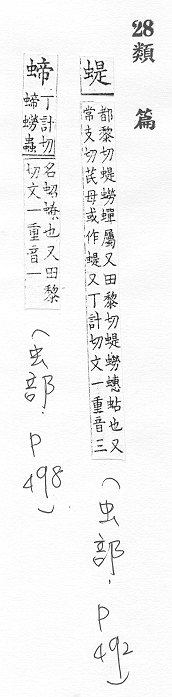 28
類篇
蝭
都黎切蝭蟧蟬屬又田黎切蝭蟧蟪蛄也又
常支切芪母或作蝭又丁計切文一重音三
(虫部.P492)
蝭
丁計切名蛁蟟也又田黎
蝭蟧蟲切文一重音一
(虫部.P498)